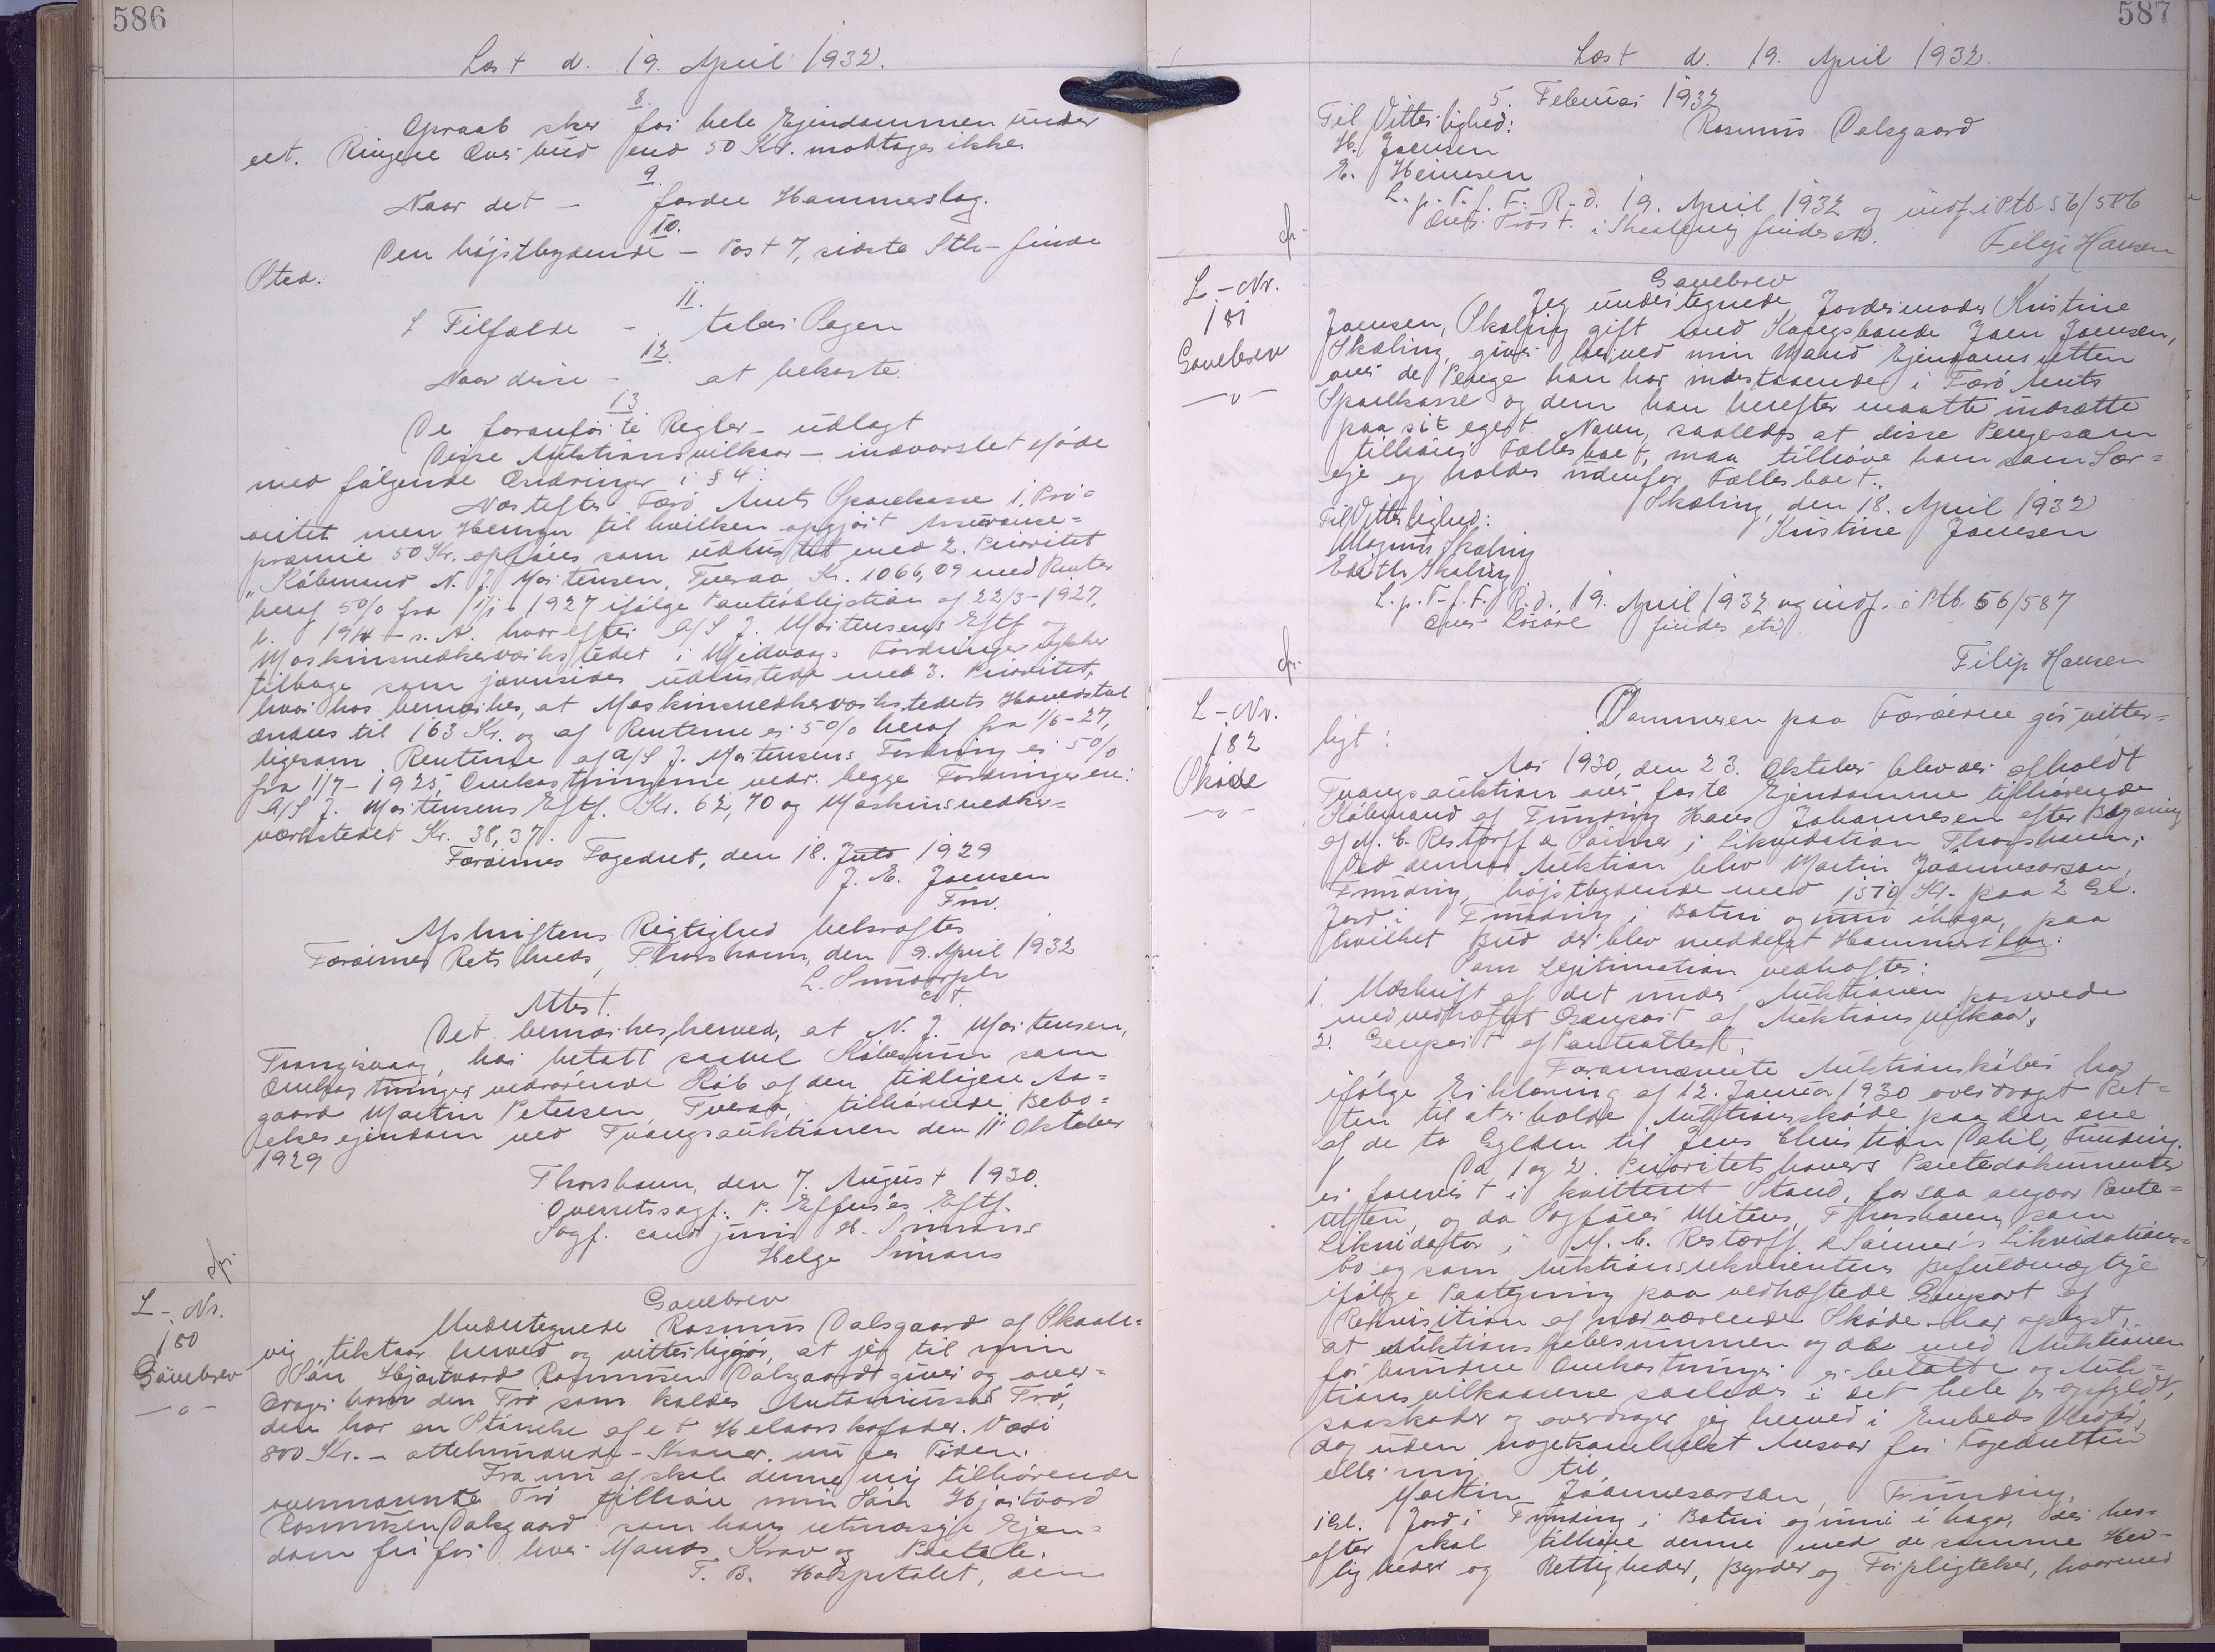 586
Læst d. 19. April 1932.
8.
Opraab sker for hele Ejendommen under
eet. Ringere Overbud end 50 Kr. modtages ikke
9.
Naar det — fordre Hammerslag.
10.
Den højstbydende — Post 7, sidste Stk — finde
Sted.
11.
I Tilfælde — taber Sagen
12.
Naar disse — at bekoste.
13
De foranførte Regler — udlagt
Disse Auktionsvilkaar — indvarslet Møde
med følgende Ændringer i § 4:
Næstefter Færø Amts Sparekasse 1. Pri=
oritet men Hensyn til hvilken opgjort Assurance=
præmie 50 Kr. opføres som udhustet med 2. Prioritet
"Købmand N. J. Mortensen, Tveraa Kr. 1066,09 med Renter
heraf 5% fra 1/1 - 1927 ifølge Panteobligation af 22/3 - 1927,
l. 1914 - s. A. hvorefter A/S J. Mortensens Eftf og
Maskinsnedkerværkstedet i Midvaags Fordringer rykker
tilbage som jævnsides udhustede med 3. Prioritet,
hvor hos bemærkes, at Maskinsnedkerværkstedets Hovedstol
ændres til 163 Kr. og af Renterne er 5% heraf fra 1/6 - 27,
ligesom Renterne af A/S J. Mortensens Fordring er 5%
fra 1/7 - 1925, Omkostningerne vedr. begge Fordringer er:
A/S J. Mortensens Eftf. Kr. 62,70 og Maskinsnedker=
værkstedet Kr. 38,37.
Færøernes Fogedret, den 18. Juli 1929
J. E. Joensen
Fm.
Afskriftens Rigtighed bekræftes
Færøernes Retskreds, Thorshavn, den 9. April 1932
L. Sundorph
cst.
Attest.
Det bemærkes herved, at N. J. Mortensen,
Trangisvaag, har betalt saavel Købesum som
Omkostninger vedrørende Køb af den tidligere Aa=
gaard Martin Petersen, Tveraa, tilhørende Bebo=
elsesejendom ved Tvangsauktionen den 11. Oktober
1929
Thorshavn, den 7. August 1930.
Overretssagf. P. Effersøes Eftf.
Sagf. cand juris H. Simons
Helge Simons
L.-Nr.
180
Gavebrev
—o—
Gavebrev
Undertegnede Rasmus Dalsgaard af Skaale=
vig tilstaar herved og vitterliggør, at jeg til min
Søn Hjartvard Rasmussen Dalsgaard giver og over=
drager ham den Trø som kaldes Antoniussar Trø,
den har en Størrelse af et Helaarskofoder. Værdi
800 Kr. — ottehundrede — Kroner nu for Tiden.
Fra nu af skal denne mig tilhørende
ovennævnte Trø tilhøre min Søn Hjartvard
Rasmussen Dalsgaard som hans retmæssige Ejen=
dom fri for hver Mands Krav og Paatale.
T. B. Hospitalet, den
587
Læst d. 19. April 1932.
5. Februar 1932
Til Vitterlighed: Rasmus Dalsgaard
H. Joensen
E. Heinesen
L. p. T. f. F. R. d. 19. April 1932 og indf. i Ptb 56/586
Filip Hansen
L.-Nr.
181
Gavebrev
—o—
Gavebrev
Jeg undertegnede Jordemoder Kristine
Joensen, Skæling gift med Kongsbonde Joen Joensen,
Skæling, giver herved min Mand Ejendomsretten
over de Penge han har indestaaende i Færø Amts
Sparekasse og dem han herefter maatte indsætte
paa sit eget Navn, saaledes at disse Penge som
tilhører Fællesboet, maa tilhøre ham som Sær=
eje og holdes udenfor Fællesboet.
Skæling, den 18. April 1932
Til Vitterlighed: Kristine Joensen
Magnus Skæling
Edith Skæling
L. p. T. f. F. R. d. 19. April 1932 og indf. i Ptb 56/587
Over Løsøre findes
Filip Hansen
L.-Nr.
182
Skøde
—o—
Dommeren paa Færøerne gør vitter=
ligt:
Aar 1930, den 23. Oktober blev der afholdt
Tvangsauktion over faste Ejendomme tilhørende
Købmand af Funding Hans Johannesen efter Begæring
af M. C. Restorff & Sønner i Likvidation Thorshavn,
Ved denne Auktion blev Martin Jóannesarson,
Funding, højstbydende med 1510 Kr. paa 2 Gl.
Jord i Funding i Botni og inni í haga, paa
hvilket Bud der blev meddelt Hammerslag.
Som Legitimation vedhæftes:
1. Udskrift af det under Auktionen passerede
med vedhæftet Genpart af Auktionsvilkaar,
2. Genpart af Panteattest.
Forannævnte Auktionskøber har
ifølge Erklæring af 12. Januar 1930 overdraget Ret=
ten til at erholde Auktionsskøde paa den ene
af de to Gylden til Jens Christian Dahl, Funding.
Da 1 og 2. Prioritetshavers Pantedokumenter
er forevist i kvitteret Stand, for saa angaar Pante=
retten, og da Sagfører Mitens, Thorshavn, som
Likvidator i M. C. Restorff & Sønner's Likvidations=
bo og som Auktionsrekvirentens Befuldmægtige
ifølge Paategning paa vedhæftede Genpart af
Rekvisition af nærværende Skøde har oplyst,
at Auktionskøbesummen og de med Auktionen
forbundne Omkostninger er betalte og Auk=
tionsvilkaarene saaledes i det hele er opfyldt,
saa skøder og overdrager jeg herved i Embeds Medfør,
dog uden nogetsomhelst Ansvar for Fogedretten
eller mig til
Martin Jóannesarson, Funding,
1 Gl. Jord i Funding i Botni og inni í haga, der her=
efter skal tilhøre denne med de samme Her=
ligheder og Rettigheder, Byrder og Forpligtelser, hvormed